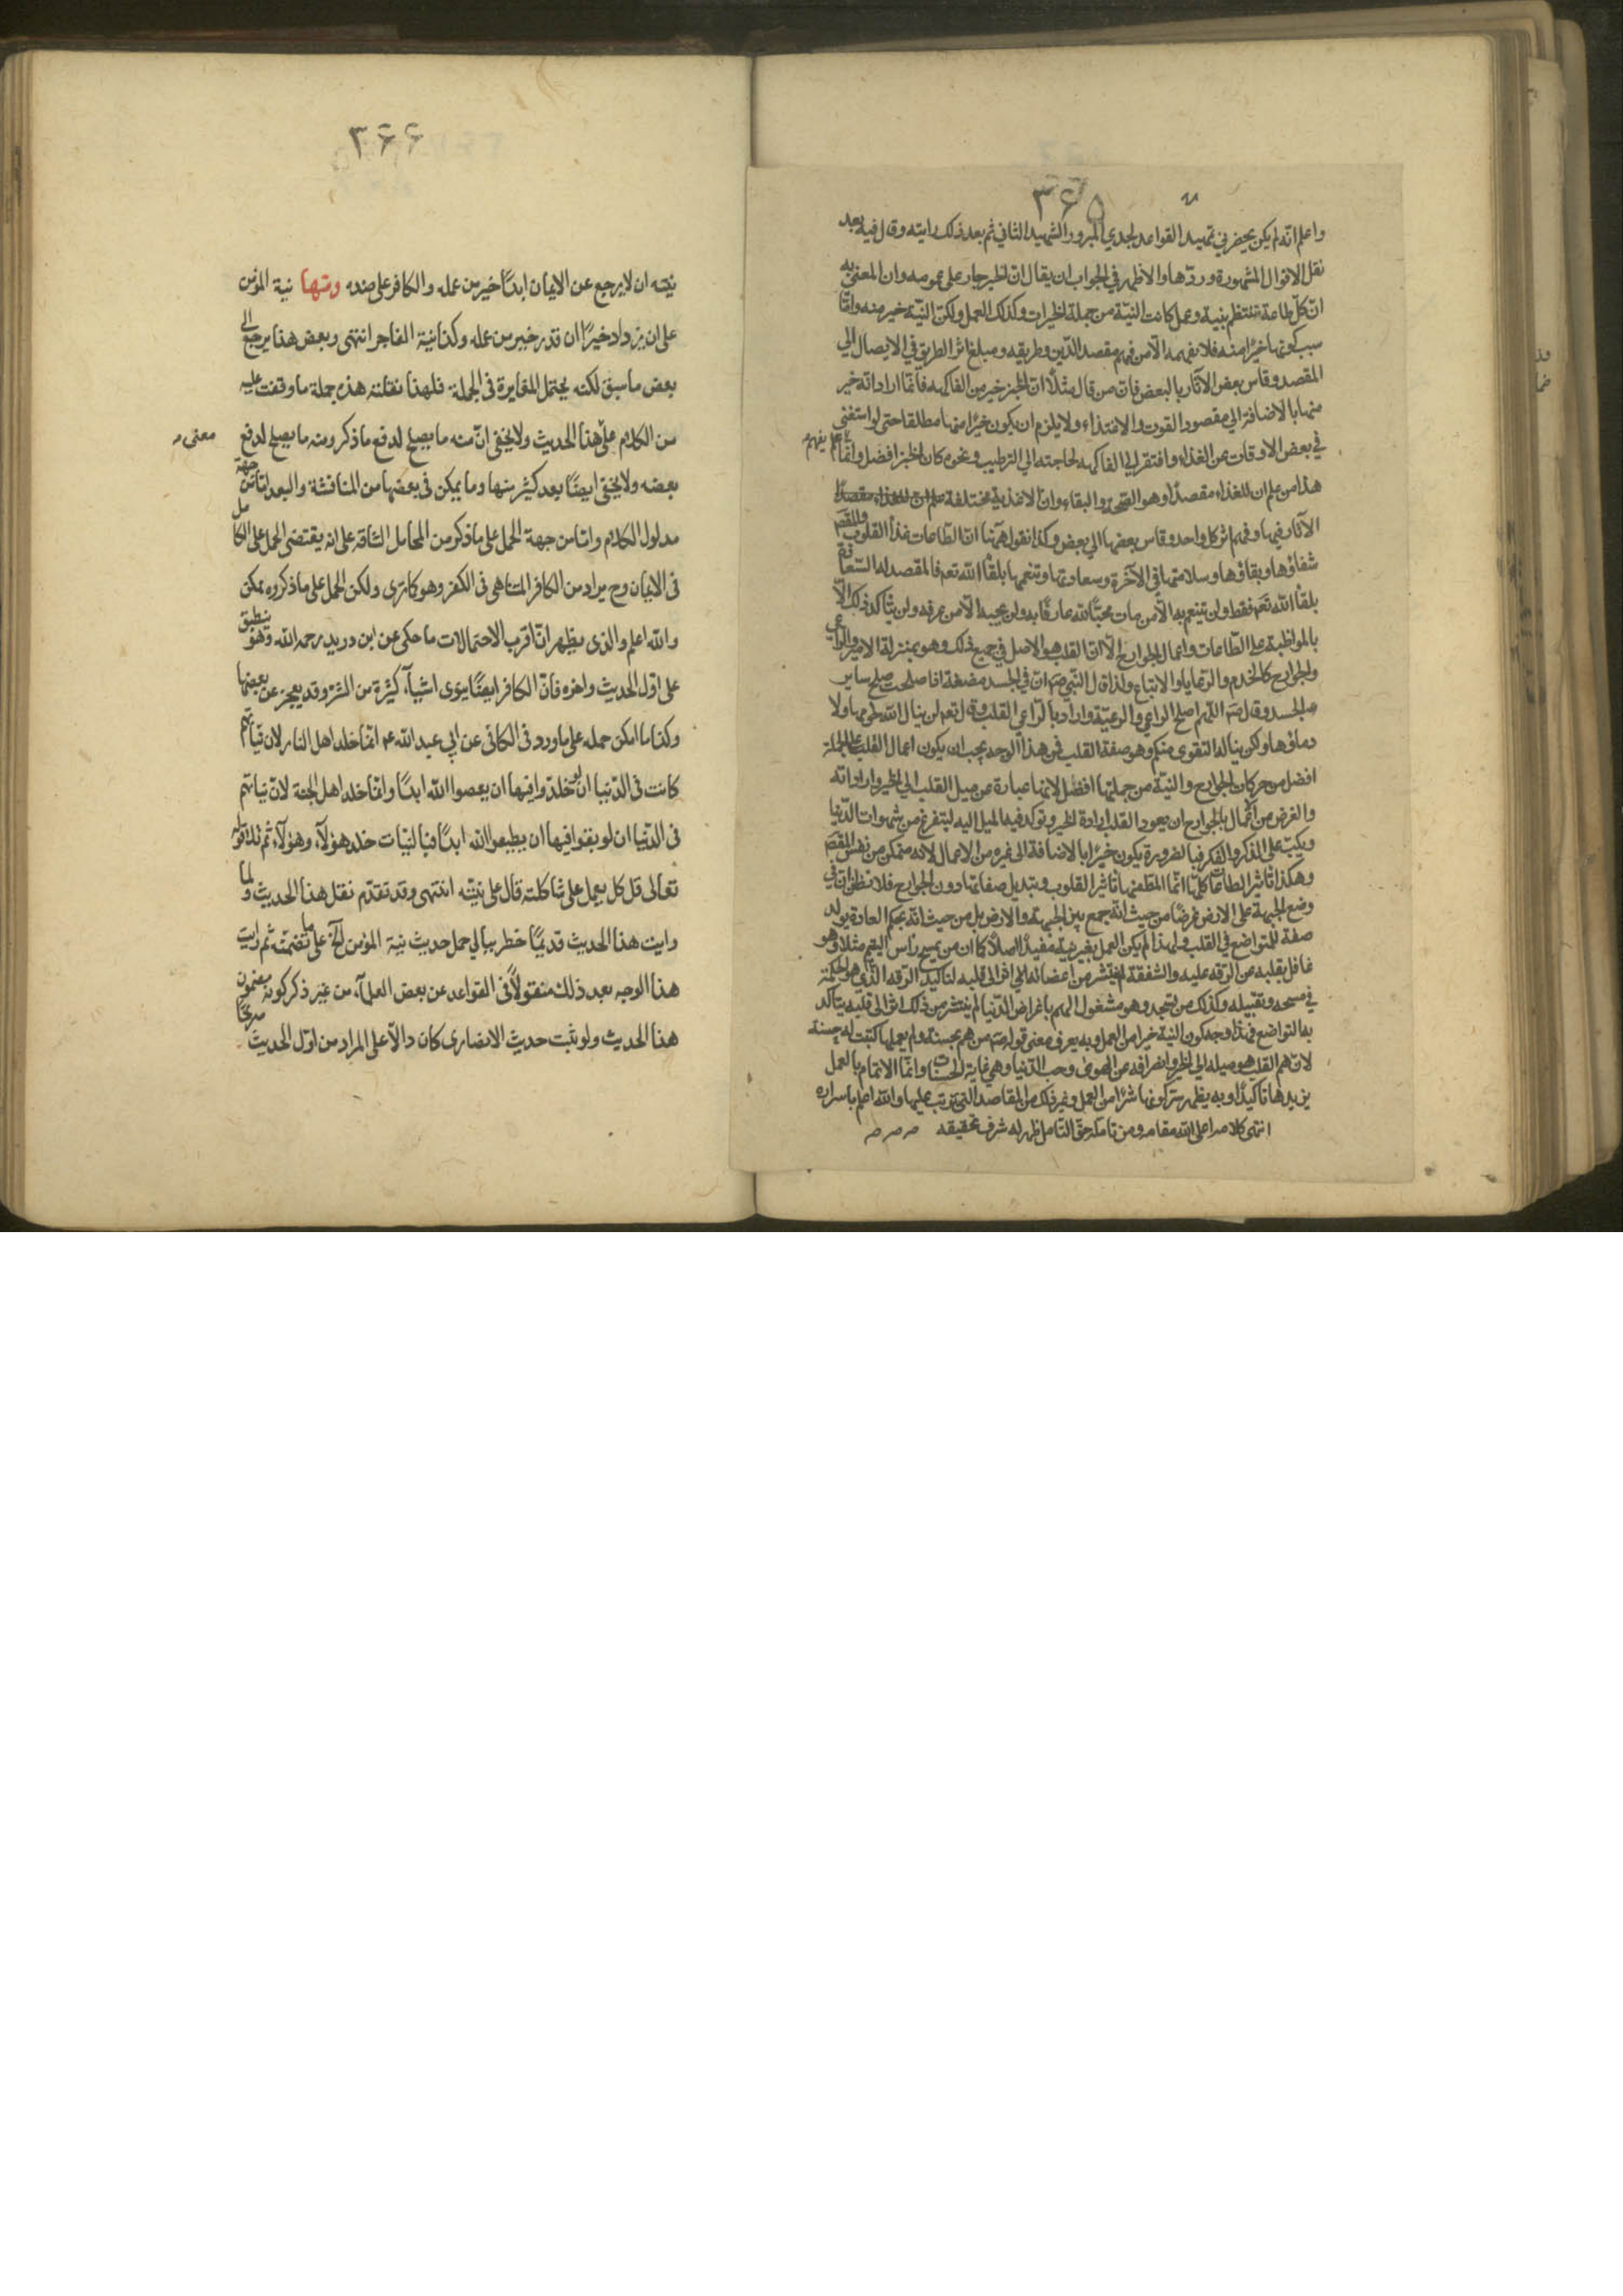 ۳۶۵
واعلم انه لم يكن يحضرني تمهيد القواعد لجدي المبرور الشهيد الثاني ثم بعد ذلك رايته وقال فيه بعد
نقل الاقوال المشهورة وردها والاظهر في الجواب ان يقال ان الخبر جار على عمومه وان المعنى به
ان كل طاعة تنتظم بنية وعمل كانت النية من جملة الخيرات وكذلك العمل ولكن النية خير منه وانما
سبب كونها خيرا منه فلا يفهمه الا من فهم مقصد الدين وطريقه ومبلغ اثر الطريق في الايصال الى
المقصد وقاس بعض الآثار بالبعض فان من قال مثلا ان الخبز خير من الفاكهه فانما اراد انه خير
منها بالاضافة الى مقصود القوت والاغتذاء ولا يلزم ان يكون خيرا منها مطلقا حتى لو استغنى
في بعض الاوقات عن الغذاء وافتقر الى الفاكهه لحاجته الى الترطيب ونحوه كان الخبز افضل وانما يفهم
هذا من علم ان للغذاء مقصدا وهو الصحة والبقاء وان الاغذية مختلفة
الآثار فيها وفهم اثر كل واحد وقاس بعضها الى بعض وكذا نقول هيهنا ان الطاعات غذاء القلوب والمقصد
شفاؤها وبقاؤها وسلامتها في الآخرة وسعادتها وتنعمها بلقاء الله تعه فالمقصد لذة السعادة
بلقاء الله تعه فقط ولن يتنعم به الا من مات محبا لله عارفا به ولن يحبه الا من عرفه ولن يتأكد ذلك الا
بالمواظبة على الطاعات واعمال الجوارح الا ان القلب هو الاصل في جميع ذلك وهو بمنزلة الامير والراعي
والجوارح كالخدم والرعايا والاتباع ولذا قال النبي صه ان في الجسد مضغة اذا صلحت صلح ساير
الجسد وقال صه اللهم اصلح الراعي والرعية واراد بالراعي القلب وقال تعه لن ينال الله لحومها ولا
دماؤها ولكن يناله التقوى منكم وهو صفة القلب فمن هذا الوجه يجب ان يكون اعمال القلب على الجملة
افضل من حركات الجوارح والنية من جملتها افضل لانها عبارة عن ميل القلب الى الخير وارادته
والغرض من اعمال بالجوارح ان يعود القلب ارادة الخير وتوكد فيه الميل اليه ليتفرغ من شهوات الدنيا
ويكب على الذكر والفكر فبالضرورة يكون خيرا بالاضافة الى غيره من الاعمال لانه متمكن من نفس المقصد
وهكذا تاثير الطاعات كلها انما المطلوب منها تاثير القلوب وتبديل صفاتها دون الجوارح فلا تظنن ان في
وضع الجبهة على الارض غرضا من حيث انه جمع بين الجبهة والارض بل من حيث انه بحكم العادة يولد
صفة التواضع في القلب ولهذا لم يكن العمل بغير نية مفيدا اصلا كما ان من يمسح رأس اليتيم مثلا وهو
غافل بقلبه عن الرقة عليه والشفقة لم ينتشر من اعضائه اثر الى قلبه لتاكيد الرقة الذي هو الحكمة
في مسحه وتقبيله وكذلك من يسجد وهو مشغول الهم باغراض الدنيا لم ينتشر من ذلك اثر الى قلبه يتأكد
به التواضع فهذا وجه كون النية خيرا من العمل وبه يعرف معنى قوله صه من هم بحسنة ولم يعملها كتبت له حسنة
لان هم القلب هو ميله الى الخير وانصرافه عن الهوى وحب الدنيا وهي غاية الحسنات وانما الاتمام بالعمل
يزيدها تاكيدا وبه يظهر سر كونها شرا من العمل وغير ذلك من المقاصد التي تترتب عليها والله اعلم باسراره
انتهى كلامه اعلى الله مقامه ومن تامله حق التامل ظهر له شرف تحقيقه
۳۶۶
نيته ان لا يرجع عن الايمان ابدا خير من عمله والكافر على ضده ومنها نية المؤمن
على ان يزداد خيرا ان قدر خير من عمله وكذا نية الفاجر انتهى وبعض هذا يرجع الى
بعض ما سبق لكنه يحتمل المغايرة في الجملة فلهذا نقلته هذه جملة ما وقفت عليه
من الكلام على هذا الحديث ولا يخفى ان منه ما يصلح لدفع ما ذكر ومنه ما يصلح لدفع معنى
بعضه ولا يخفى ايضا بعد كثير منها وما يمكن في بعضها من المناقشة والبعد اما من جهة
مدلول الكلام واما من جهة الحمل على ما ذكر من المحامل الشاقة على انه يقتضي الحمل على الكامل
في الايمان وح يراد من الكافر المتناهي في الكفر وهو كما ترى ولكن الحمل على ما ذكروه ممكن
والله اعلم والذي يظهر ان اقرب الاحتمالات ما حكى عن ابن دريد رحمه الله وهو ينطبق
على اول الحديث واخره فان الكافر ايضا ينوى اشياء كثيرة من الشر وقد يعجز عن بعضها
وكذا ما امكن حمله على ما ورد في الكافي عن ابي عبد الله عه انما خلد اهل النار لان نياتهم
كانت في الدنيا ان لو خلدوا فيها ان يعصوا الله ابدا وانما خلد اهل الجنة لان نياتهم
في الدنيا ان لو بقوا فيها ان يطيعوا الله ابدا فبالنيات خلد هؤلاء وهؤلاء ثم تلا قوله
تعالى قل كل يعمل على شاكلته قال على نيته انتهى وقد تقدم نقل هذا الحديث ولما
رايت هذا الحديث قديما خطر ببالي حمل حديث نية المؤمن الخ على ما تضمنه ثم رايت
هذا الوجه بعد ذلك منقولا في القواعد عن بعض العلماء من غير ذكر كونه مضمون
هذا الحديث ولو ثبت حديث الانصارى كان دالا على المراد من اول الحديث صريحا